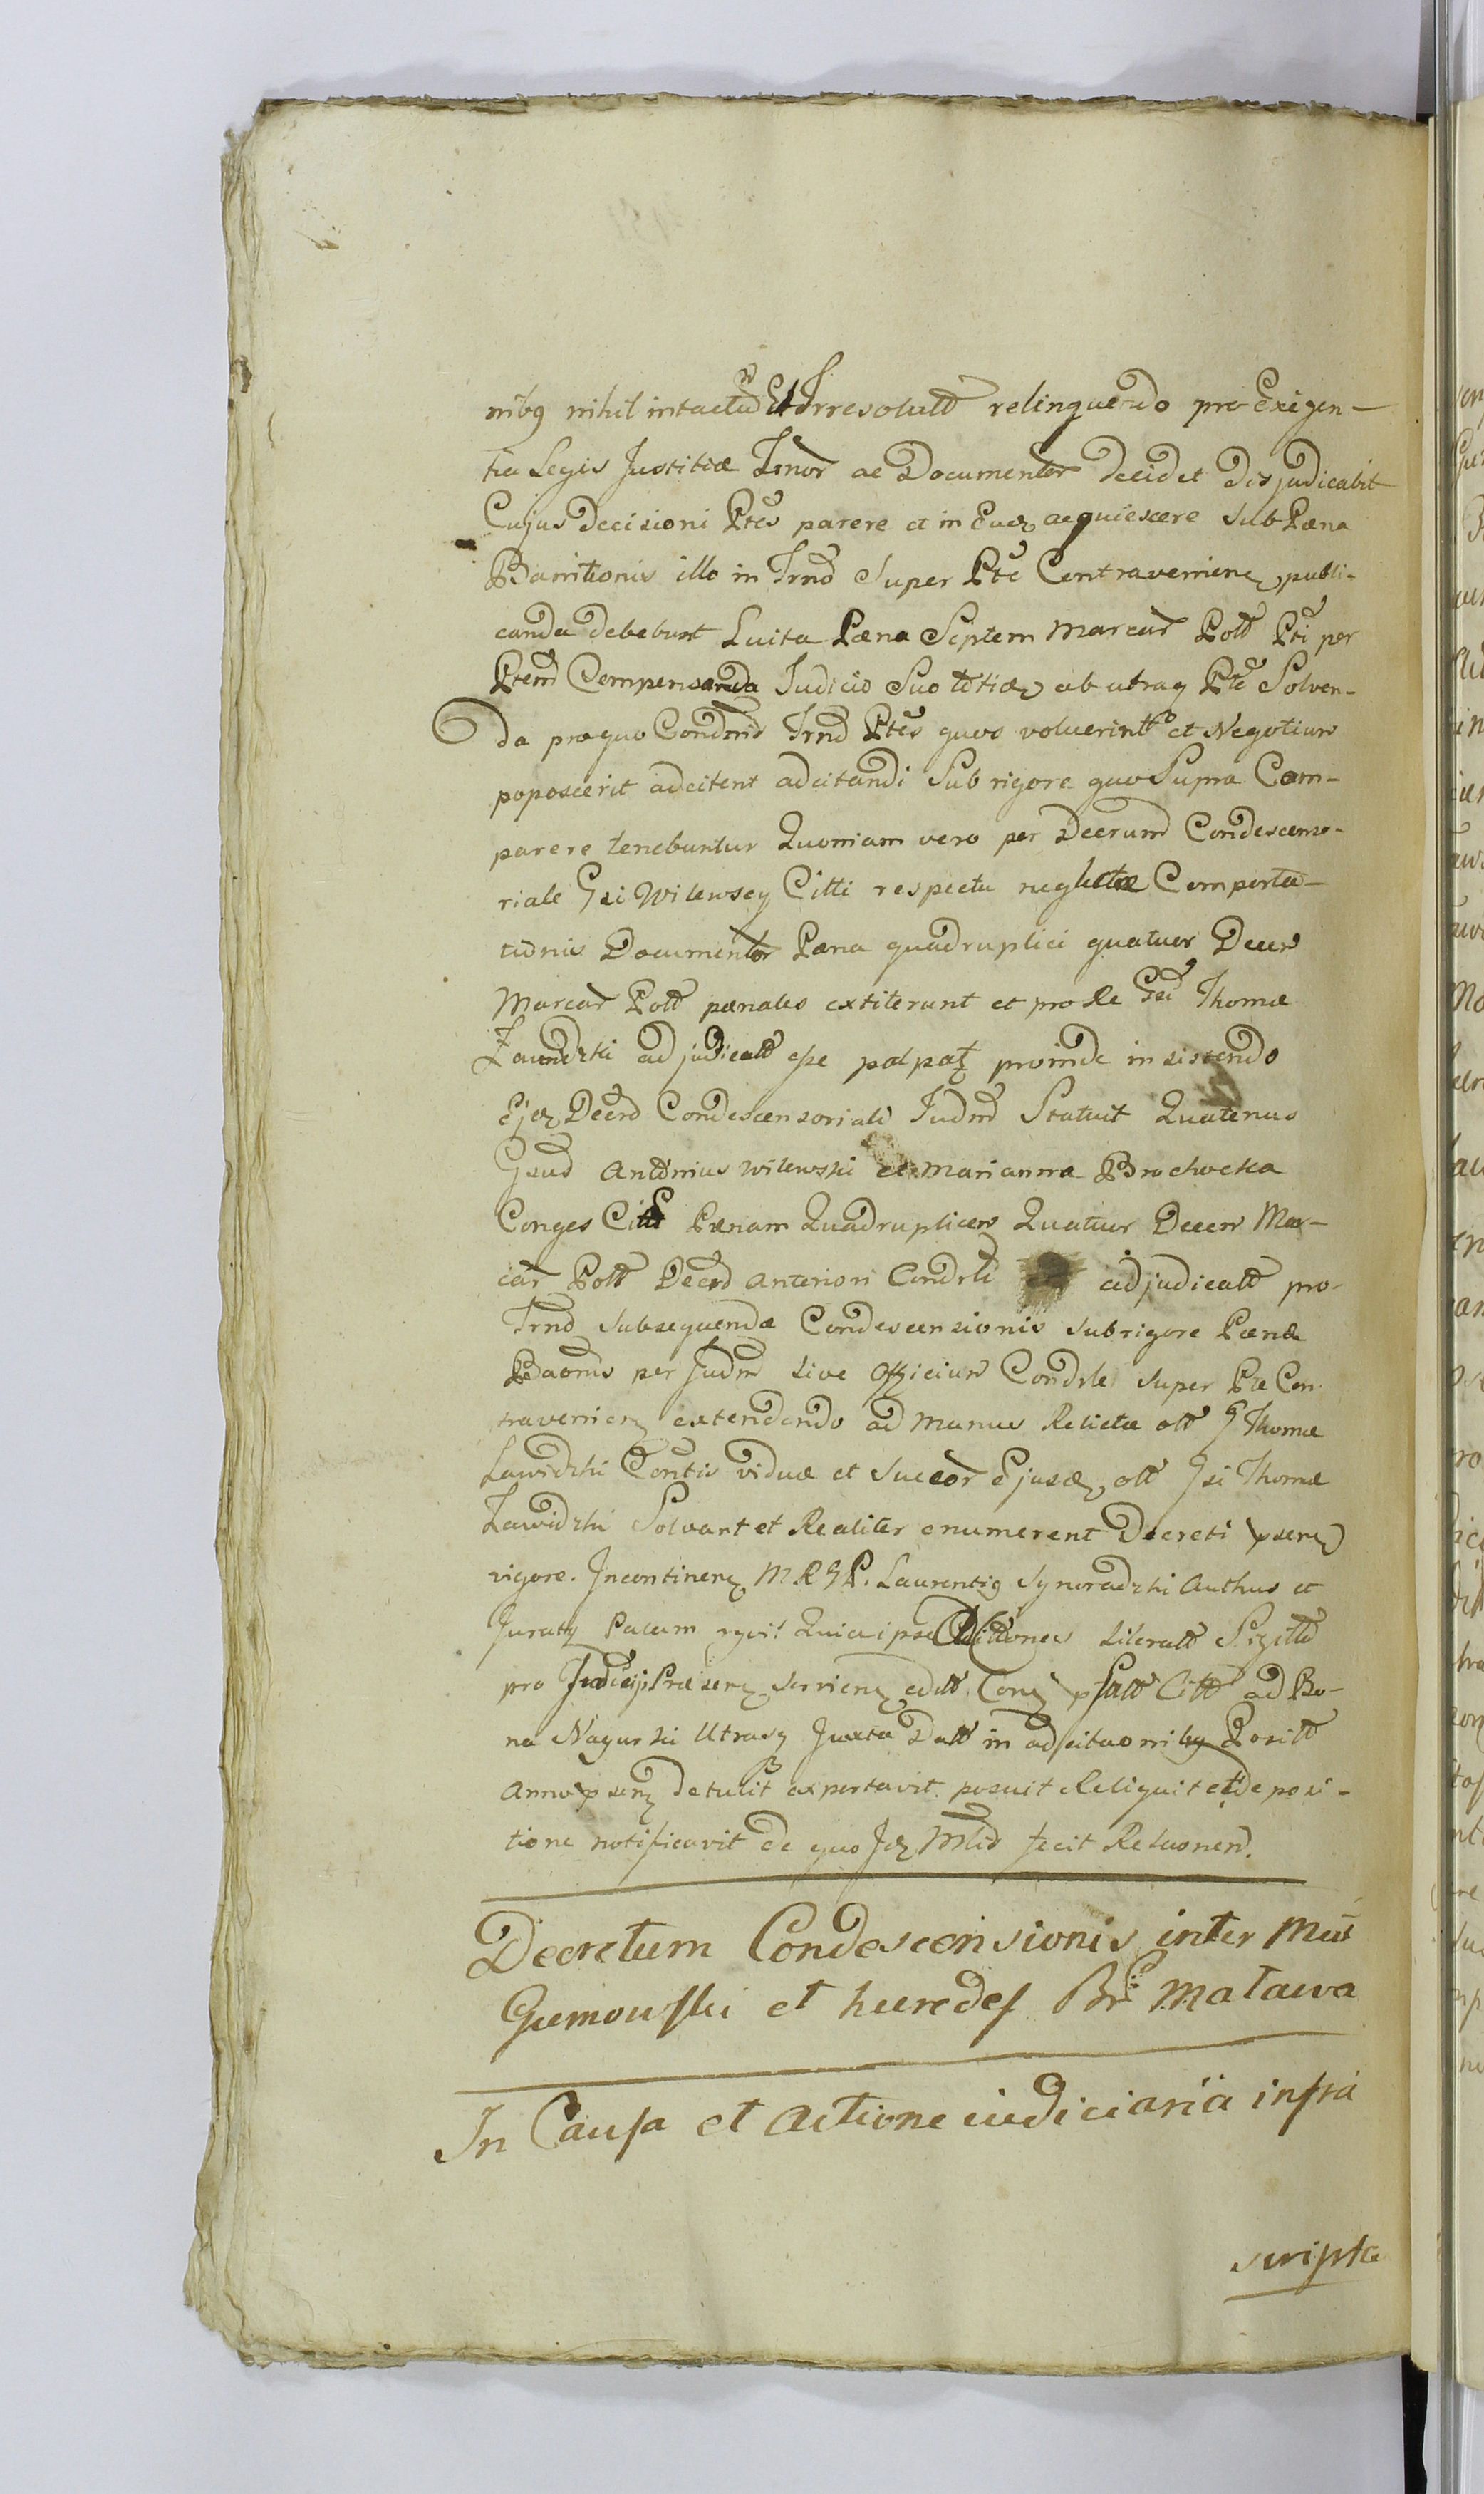 nibq nihil intactū Et Irresolutt relinquendo pro Exigen-
tia Legis Justitiæ Trnor ac Documentor decidet Disjudicabit
Cujus Decisioni Ptes parere et in Eadz acquiescere sub Pæna
Bannitionis illo in Trno Super Pte Contravenienz publi-
canda debebunt Luita Pæna Septem Marcar Poll Pti per
Ptem Compensanda Judicio Suo ab utraq Pte Solven-
da præquo Condnis Trno Ptes quos voluerint et Negotium
poposcerit adcitent adcitandi Sub rigore quo Supra Com-
parere tenebuntur Quoniam vero per Decrum Condescenso-
riale Gsi Wilewscy Citti respectu neglectæ Comporta-
tionis Documentor Pæna quadruplici quatuor Decem
Marcar Poll pænales extiterunt et pro Re Gsi Thomæ
Zawidzki adjudicatt esse proinde insistendo
Ejdz Decro Condescensoriali Judm Statuit Quatenus
Gsud Antonius Wilewski et Marianna Brochocka
Conges Citt Pænam Quadruplicem Quatuor Decem Mar-
car Poll Decro anteriori Condrli adjudicatt pro-
Trno subsequendæ Condescensionis sub rigore Pænæ
Baonis per Judm sive Officium Condrle super Pte Con
travenienz extendendo ad manus Relictæ oll G Thomæ
Zawidzki Contis viduæ et Succor Ejusdz oll Gsi Thomæ
Zawidzki Solvant et Realiter enumerent Decreti psenz
vigore. Incontinenz M R G P. Laurentig Synoradzki Authus et
Juratq Palam Quia ipse literatt Sigilltt
pro Judicijs Præsenz servienz editt Citt ad Bo-
na Nagurki Utrasq Juxta Datt in adcitaonibq Positt
Anno psenz detulit exportavit posuit Reliquit et de posi-
tione notificavit de quo Jdz Mlis fecit Relaonem.
Decretum Condescensionis inter
Gumowski et heredes Matawa
In Causa et actione iudiciaria infra
scripta